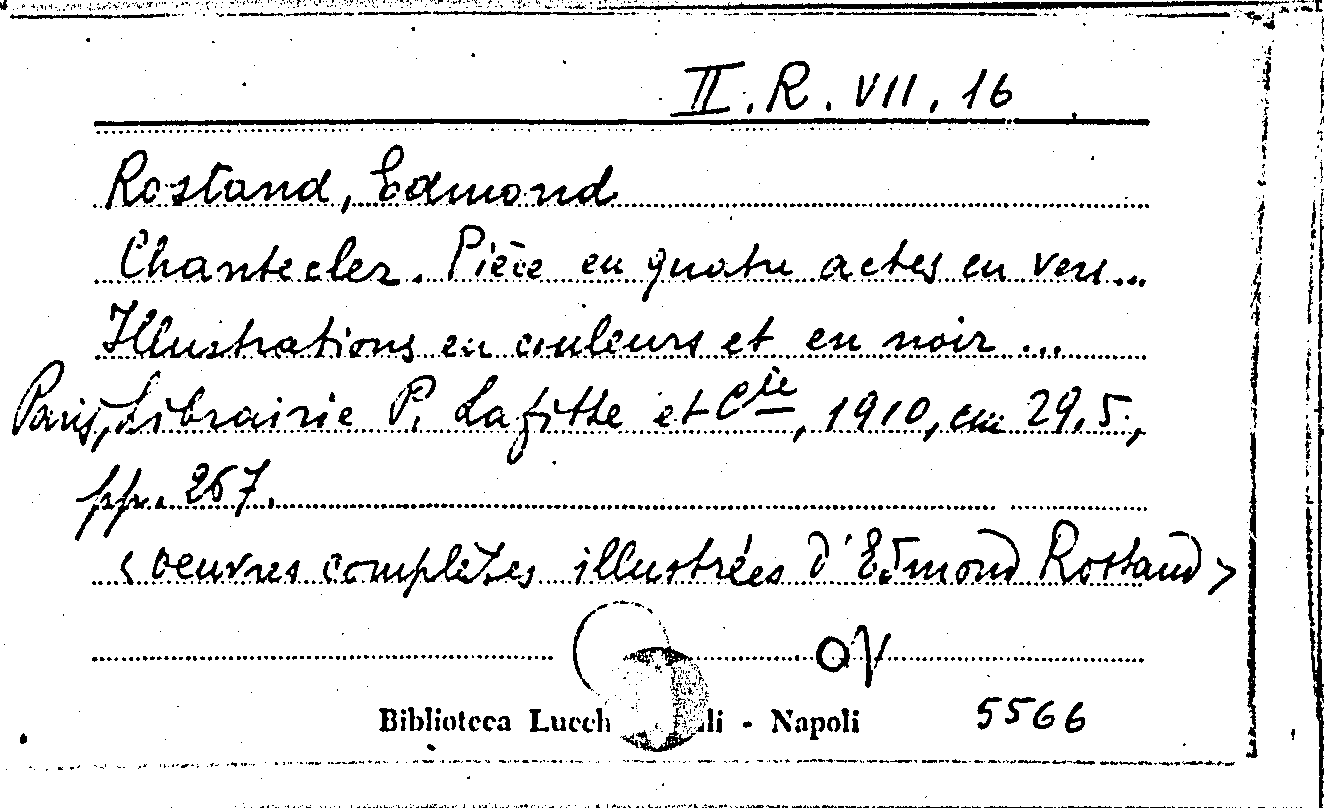 II. R. VII. 16
Rostand, Edmond
Chantecler. Pièce en quatre actes en vers...
Illustrations en couleurs et en noir ...
Paris, Librairie P. Lafitte et Cie, 1910, cm 29,5,
pp. 267.
< oeuvres complètes illustrées d'Edmond Rostand >
Biblioteca Lucch li - Napoli
5566